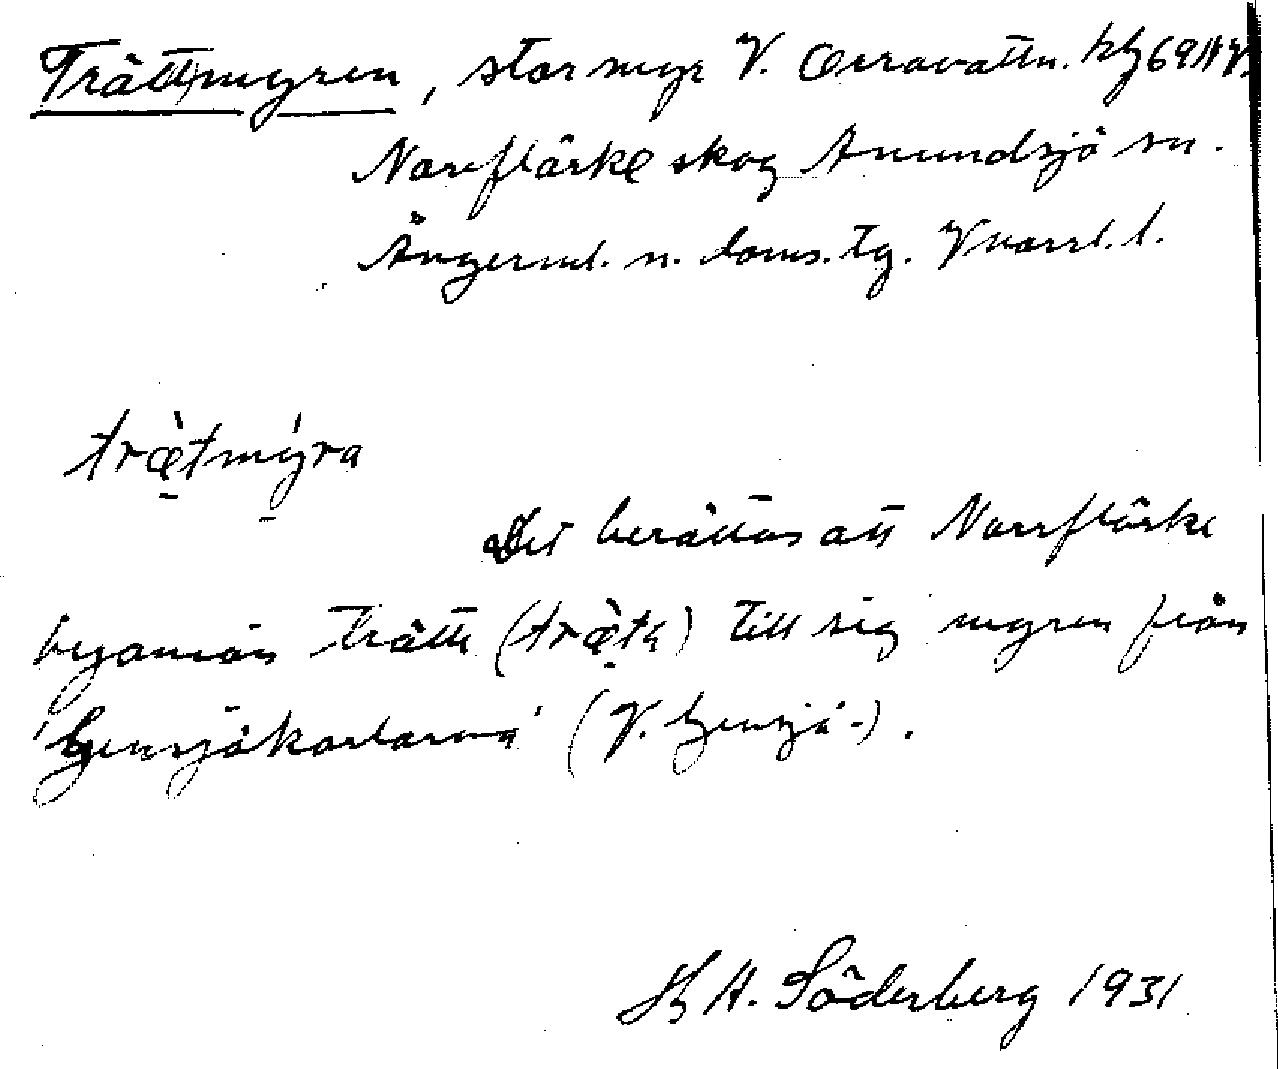 Trättmyren, stor myr V. Orravattn. 69 NV.
Norrflärke skog Anundsjö sn.
Ångerml. n. doms. tg. Vnorrl. l.
træ̀tmýra
Det berättas att Norrflärke
byamän trätte (træ̀tä) till sig myren från
'Gensjökarlarna' (V. Gensjö-).
H A. Söderberg 1931